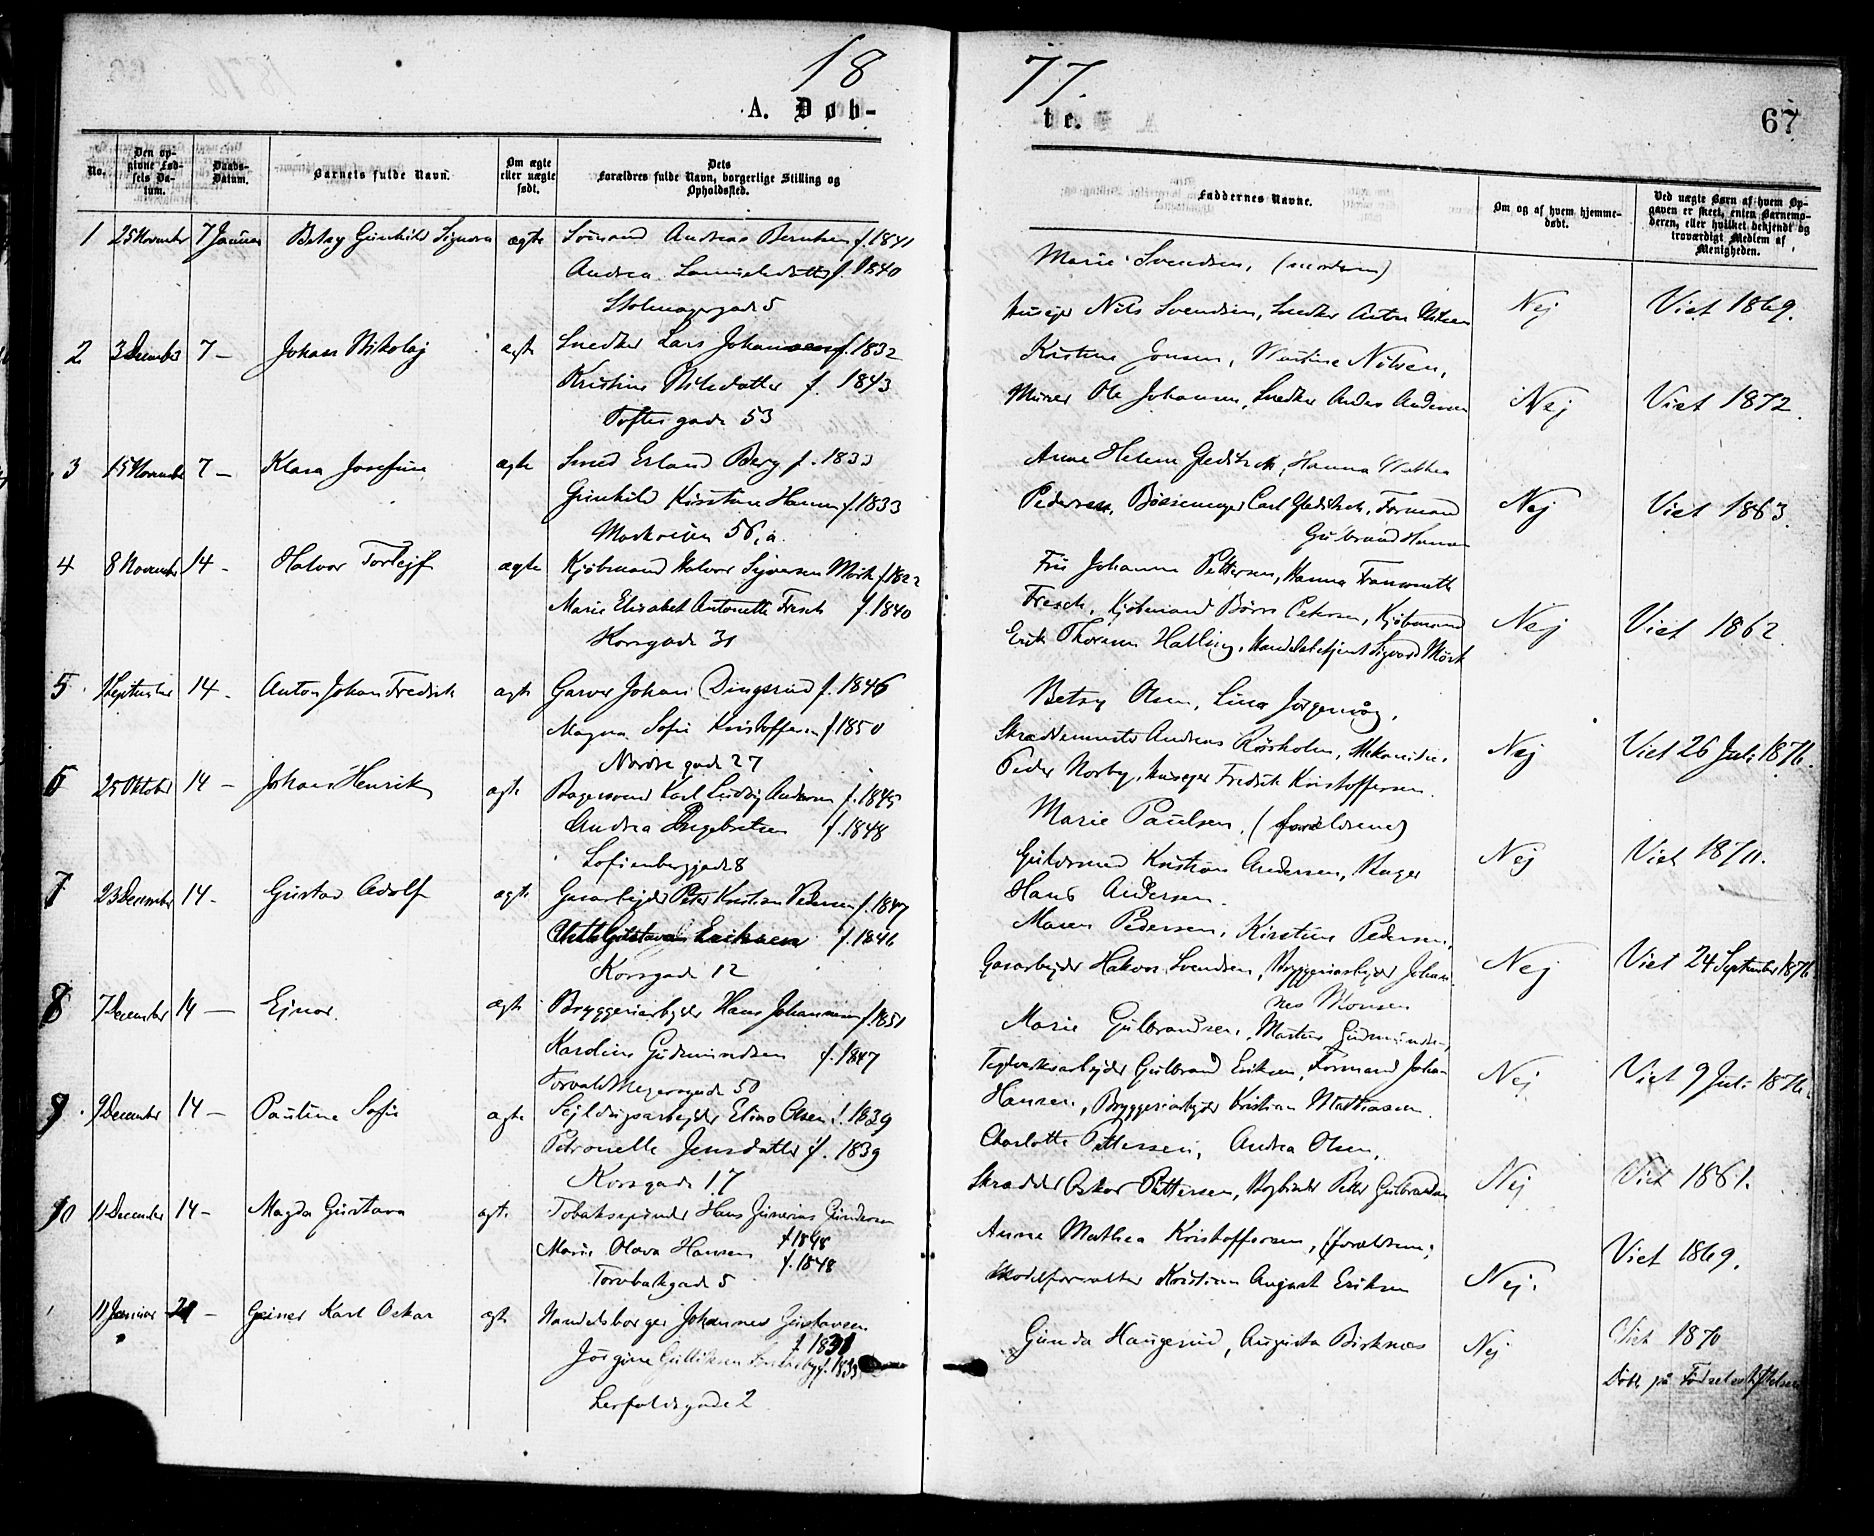 18 77.
A. Døb-
te.
67
No.
Den op-
givne Fød-
sels Da-
tum.
Daabs-
Datum.
Barnets fulde Navn.
Om ægte
eller uægte
født.
Dets
Forældres fulde Navn, borgerlige Stilling og
Opholdssted.
Faddernes Navne.
Om og af hvem hjemme-
døbt.
Ved uægte Børn af hvem Op-
gaven er skeet, enten Barnemo-
deren, eller hvilket bekjendt og
troværdigt Medlem af
Menigheden.
1 25 November 7 Januar Betsy Gunhild Signora ægte Andreas Berntsen f. 1841
Andrea f. 1840
5
Marie Svendsen, (
Nils Svendsen, Snedker Anton Nilsen
Nej Viet 1869.
2 3 December 7 – Johan Nikolaj ægte Snedker Lars Johansen f. 1832
Kristine Nilsdatter f. 1843
Toftes gade 53
Kristine Jonsen, Martine Nilsen,
Murer Ole Johansen, Snedker Anders Andersen
Nej Viet 1872.
3 15 November 7 – Klara Josefine ægte Smed Erland Berg f. 1833
Gunhild Kirstine Hansen f. 1833
Markveien 56, a.
Anne Helene Gleditsch, Hanna Mathea
Pedersen, Bøssemager Carl Gleditsch, Formand
Gulbrand Hansen
Nej Viet 1863.
4 8 November 14 – Halvor Torlejf ægte Kjøbmand Halvor Syversen Mørk f. 1822
Marie Elisabet Antonette Fresch f. 1840
Korsgade 31
Fru Johanna Pettersen, Hanna
Fresch, Kjøbmand Børre Petersen, Kjøbmand
Erik Thorsen Halling, Handelsbetjent Sigvard Mørk
Nej Viet 1862.
5 September 14 – Anton Johan Fredrik ægte Garver Johan Dingsrud f. 1846
Magna Sofie Kristoffersen f. 1850
Nordre gade 27
Betsy Olsen, Lina
Skræddermester Andreas Røisholm,
Peder Norby, Huseier Fredrik Kristoffersen.
Nej Viet 26 Juli 1876.
6 25 Oktober 14 – Johan Henrik ægte Bagersvend Karl Ludvig Andersen f. 1845
Andrea Ingebretsen f. 1848
Sofienberggade 8
Marie Paulsen, (forældrene)
Guldsmed Kristian Andersen, Bager
Hans Andersen.
Nej Viet 1871.
7 23 December 14 – Gustav Adolf ægte Gasarbejder Peter Kristian Pedersen f. 1847
Gustava Eriksen f. 1846
Korsgade 12
Maren Pedersen, Kirstine Pedersen,
Gasarbejder Halvor Svendsen, Bryggeriarbejder Johan-
nes Monsen
Nej Viet 24 September 1876
8 7 December 14 – Ejnar. ægte Bryggeriarbejder Hans Johannesen f. 1851
Karoline Gudmundsen f. 1847
Torvald Meyersgade 50
Marie Gulbrandsen, Martine Gudmundsen,
Teglverksarbejder Gulbrand Eriksen, Formand Johan
Hansen, Bryggeriarbejder Kristian Mathiasen.
Nej Viet 9 Juli 1876.
9 9 December 14 – Pauline Sofie ægte Sejldugsarbejder Olsen f. 1839
Petronelle Jensdatter f. 1839
Korsgade 17
Charlotte Pettersen, Andrea Olsen,
Skrædder Oskar Pettersen, Bogbinder Petter Gulbrandsen
Nej Viet 1861.
10 11 December 14 – Magda Gustava ægte Tobaksspinder Hans Gunerius Gundersen
f. 1848
Marie Olava Hansen f. 1848
Torvbakgade 5
Anne Mathea Kristoffersen, (forældrene)
Kristian August Eriksen
Nej. Viet 1869.
11 Januar 21 – Karl Oskar ægte Handelsborger Johannes Gustavsen
f. 1831
Jørgine Gulliksen
Lerfaldsgade 2
Gunda Haugerud, Augusta Birknes
Nej Viet 1870
Døbt på Fødselsstiftelsen